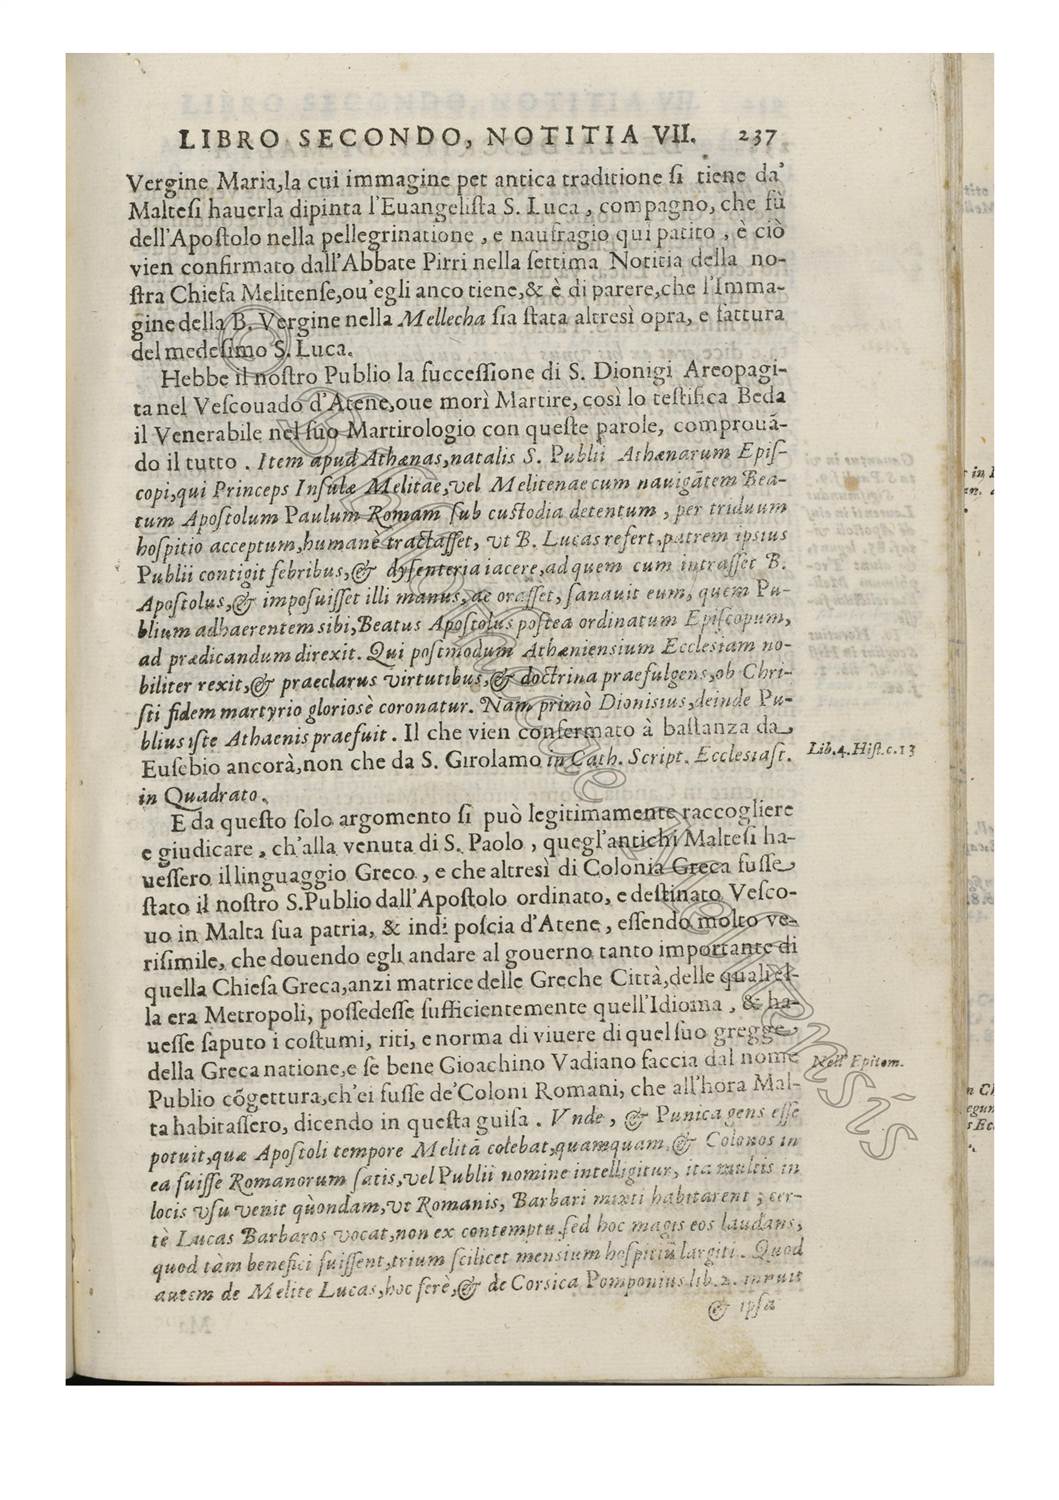 LIBRO SECONDO, NOTITIA VII. 237
Vergine Maria,la cui immagine pet antica traditione ſi tiene da'
Malteſi hauerla dipinta l'Euangeliſta S. Luca, compagno, che fù
dell'Apoſtolo nella pellegrinatione, e naufragio qui patito, è ciò
vien confirmato dall'Abbate Pirri nella ſettima Notitia della no-
ſtra Chieſa Melitenſe,ou'egli anco tiene,& è di parere,che l'Imma-
gine della B. Vergine nella Mellecha ſia ſtata altresì opra, e fattura
del medeſimo S. Luca.
Hebbe il noſtro Publio la ſucceſſione di S. Dionigi Areopagi-
ta nel Veſcouado d'Atene,oue morì Martire, così lo teſtifica Beda
il Venerabile nel ſuo Martirologio con queſte parole, comprouã-
do il tutto. Item apud Athænas,natalis S. Publii Athænarum Epiſ-
copi,qui Princeps Inſulæ Melitae,vel Melitenae cum nauigãtem Bea-
tum Apoſtolum Paulum Romam ſub cuſtodia detentum, per triduum
hoſpitio acceptum,humanè tractaſſet, vt B. Lucas refert,patrem ipsius
Publii contigit febribus,& dyſenteria iacere,ad quem cum intraſſet B.
Apoſtolus,& impoſuiſſet illi manus,ac oraſſet,ſanauit eum, quem Pu-
blium adhaerentem sibi,Beatus Apoſtolus poſtea ordinatum Epiſcopum,
ad prædicandum direxit. Qui poſtmodum Athæniensium Eccleſiam no-
biliter rexit,& praeclarus virtutibus,& doctrina praefulgens,ob Chri-
ſti fidem martyrio glorioſè coronatur. Nam primò Dionisius,deinde Pu-
blius iſte Athaenis praefuit. Il che vien confermato à baſtanza da
Euſebio ancorà,non che da S. Girolamo in Cath. Script. Eccleſiaſt.
in Quadrato.
Lib.4.Hiſt.c.13
E da queſto ſolo argomento ſi può legitimamente raccogliere
e giudicare, ch'alla venuta di S. Paolo, quegl'antichi Malteſi ha-
ueſſero il linguaggio Greco, e che altresì di Colonia Greca fuſſe
ſtato il noſtro S.Publio dall'Apoſtolo ordinato, e deſtinato Veſco-
uo in Malta ſua patria, & indi poſcia d'Atene, eſſendo molto ve-
riſimile, che douendo egli andare al gouerno tanto importante di
quella Chieſa Greca,anzi matrice delle Greche Città,delle quali el-
la era Metropoli, poſſedeſſe ſufficientemente quell'Idioma, & ha-
ueſſe ſaputo i coſtumi, riti, e norma di viuere di quel ſuo gregge
della Greca natione,e ſe bene Gioachino Vadiano faccia dal nome
Nell'Epitom.
Publio cõgettura,ch'ei fuſſe de'Coloni Romani, che all'hora Mal-
ta habitaſſero, dicendo in queſta guiſa. Vnde, & Punica gens eſſe
potuit,quæ Apoſtoli tempore Melitã colebat,quamquam,& Colonos in
ea fuiſſe Romanorum ſatis,vel Publii nomine intelligitur, ita multis in
locis vſu venit quòndam,vt Romanis, Barbari mixti habitarent; cer-
tè Lucas Barbaros vocat,non ex contemptu,ſed hoc magis eos laudans,
quod tàm benefici fuiſſent,trium ſcilicet mensium hoſpitiũ largiti. Quod
autem de Melite Lucas,hoc ferè,& de Corsica Pomponius lib.2. innuit
& ipſa
© Bibliothèque Malthèsis